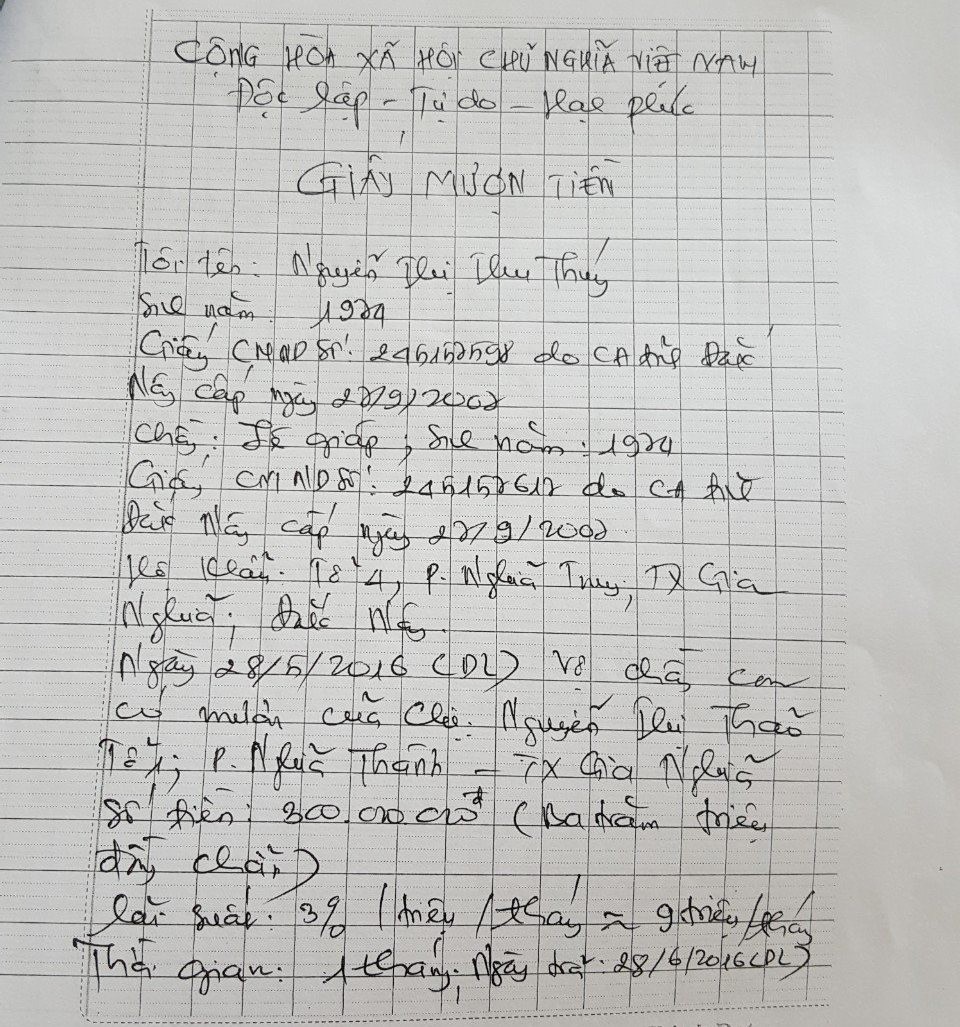 CỘNG HÒA XÃ HỘI CHỦ NGHĨA VIỆT NAM
Độc lập - Tự do - Hạnh phúc
GIẤY MƯỢN TIỀN
Tôi tên: Nguyễn Thị Thu Thúy
Sinh năm: 1974
Giấy CMND số: 245157598 do CA tỉnh Đắk
Nông cấp ngày 27/9/2007
Chồng: Lê Giáp, Sinh năm: 1974
Giấy CMND số: 245157617 do CA tỉnh
Đắk Nông cấp ngày 27/9/2007
Hộ khẩu: Tổ 4, P. Nghĩa Trung, TX Gia
Nghĩa, Đắk Nông.
Ngày 28/5/2016 (DL) Vợ chồng con
có mượn của Chị: Nguyễn Thị Thảo
P. Nghĩa Thành - TX Gia Nghĩa
Số tiền: 300.000.000đ (Ba trăm triệu
đồng chẵn)
Lãi suất: 3% /triệu/tháng ≈ 9 triệu/tháng
Thời gian: 1 tháng. Ngày trả: 28/6/2016 (DL)